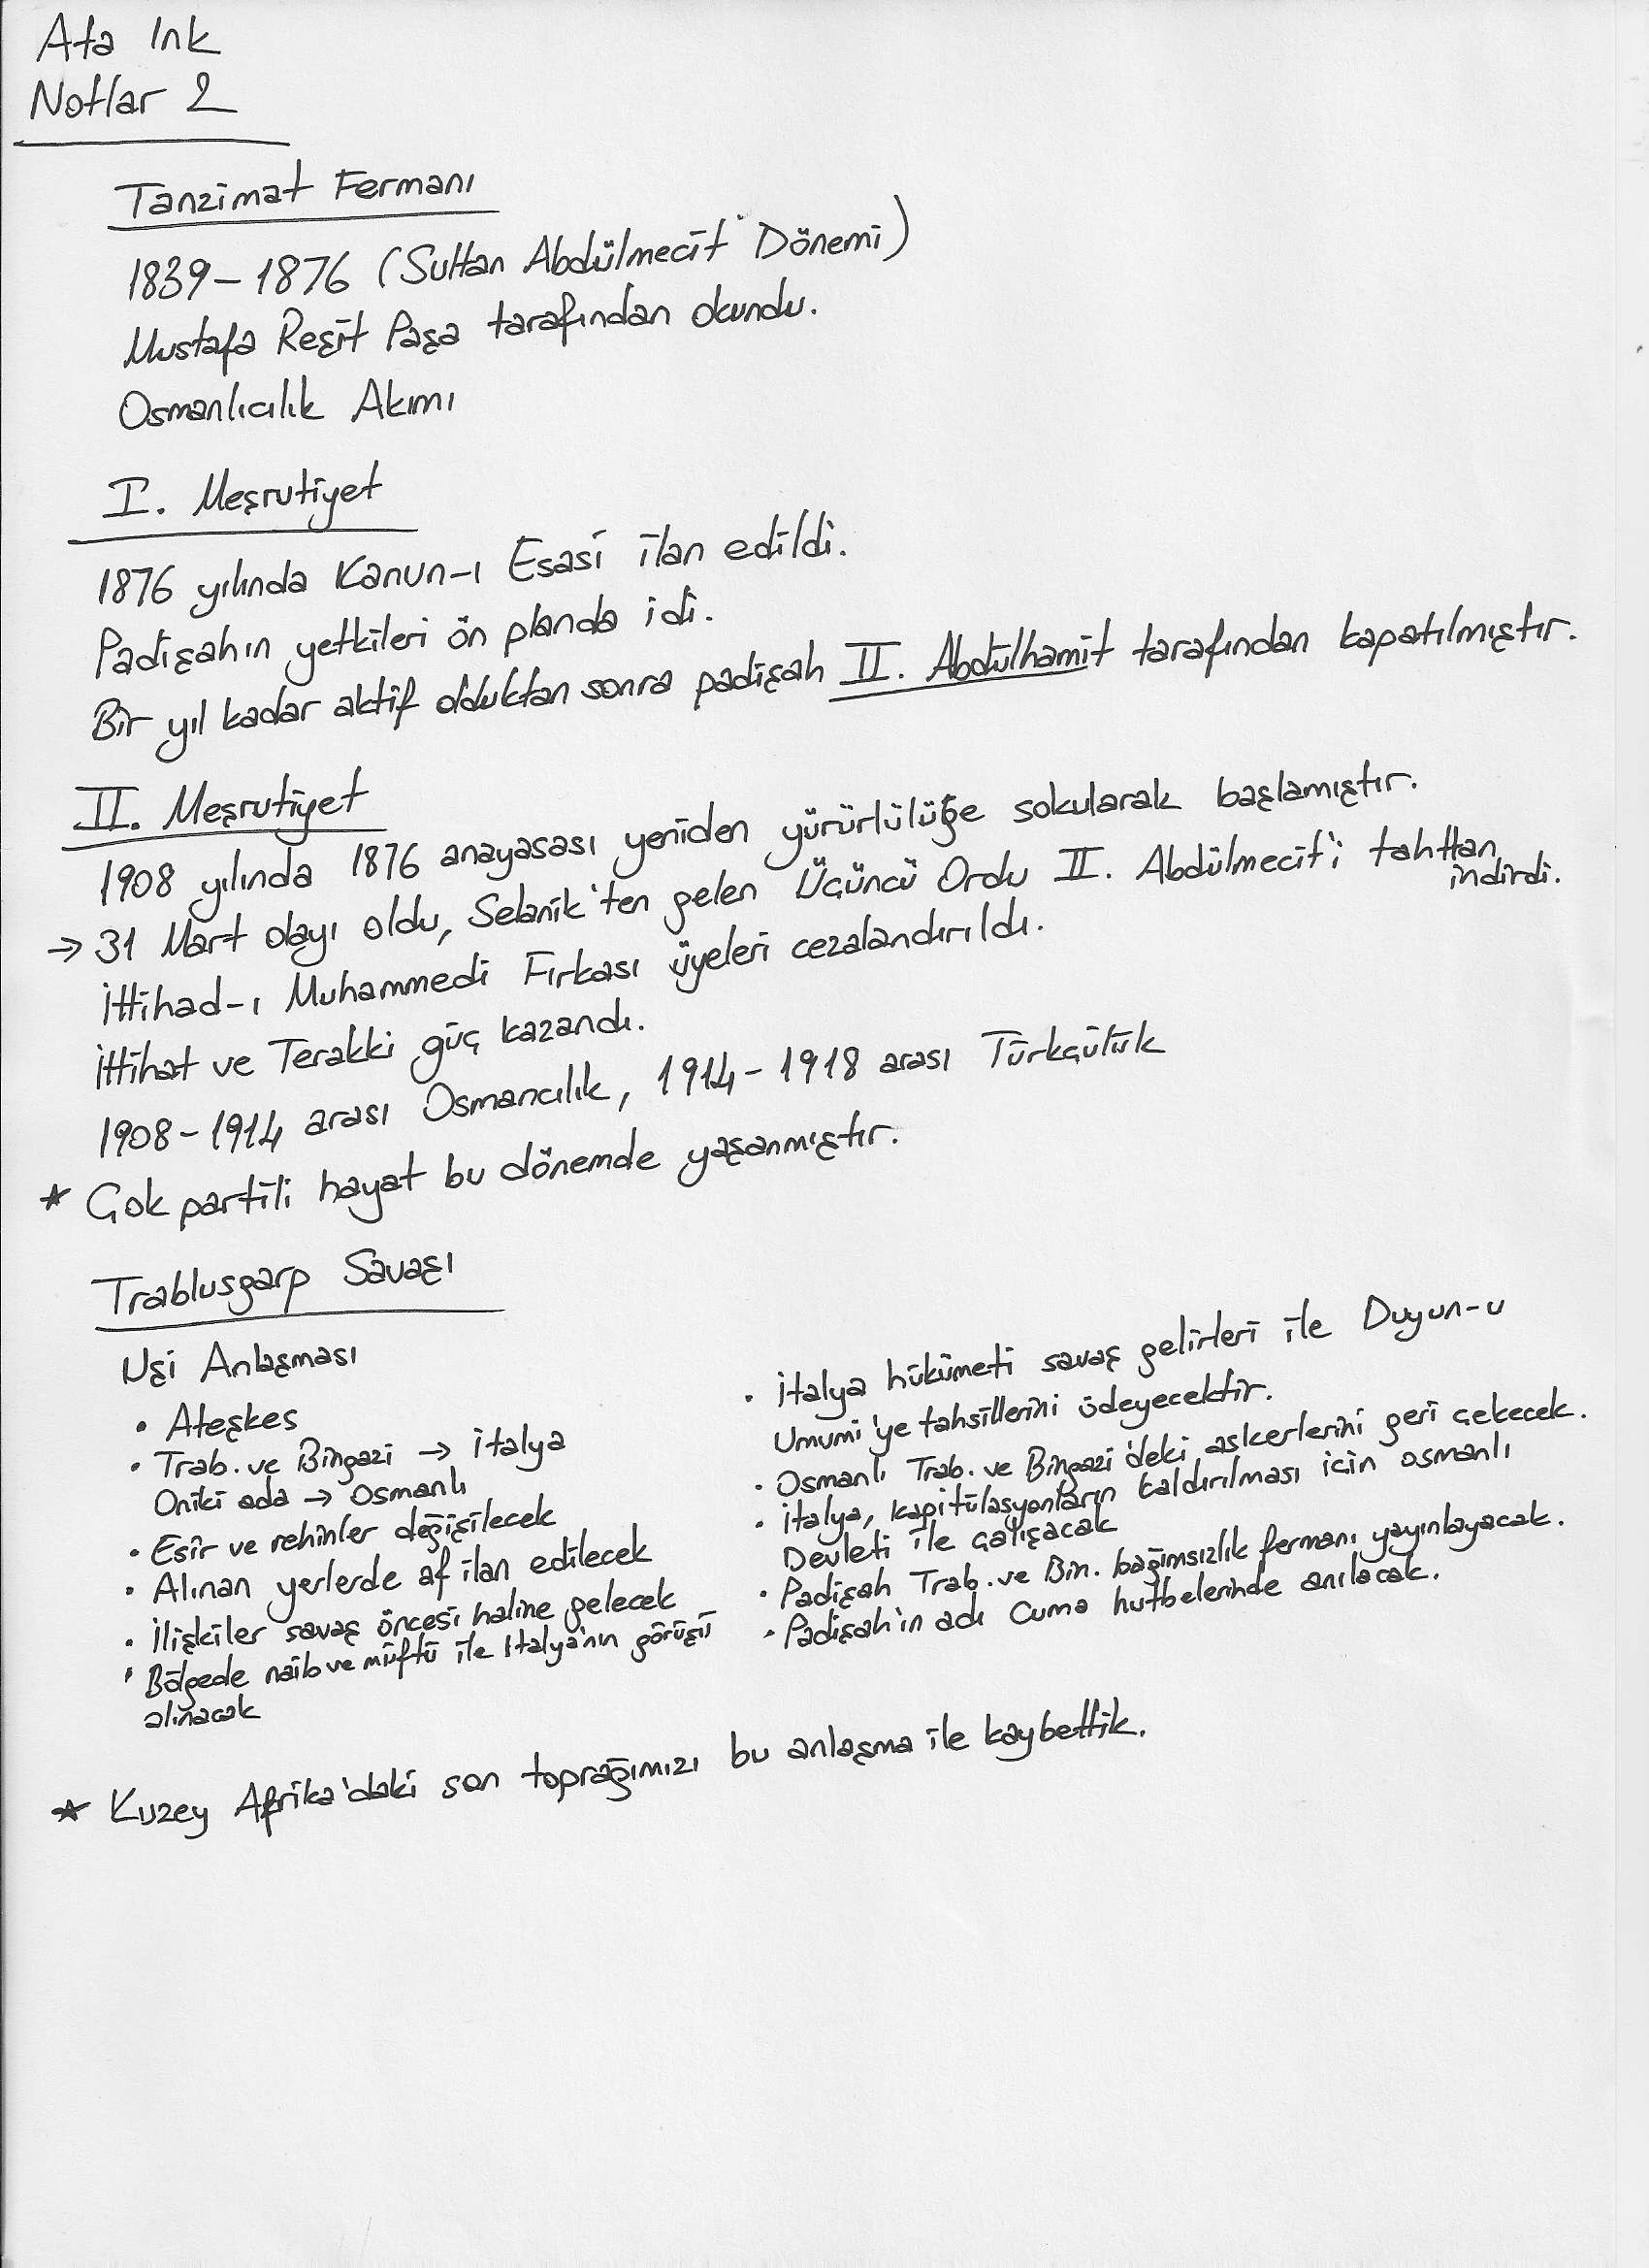 Ata Ink
Notlar 2
Tanzimat Fermanı
1839-1876 (Sultan Abdülmecit Dönemi)
Mustafa Reşit Paşa tarafından okundu.
Osmanlıcılık Akımı
I. Meşrutiyet
1876 yılında Kanun-ı Esasi ilan edildi.
Padişahın yetkileri ön planda idi.
Bir yıl kadar aktif olduktan sonra padişah II. Abdülhamit tarafından kapatılmıştır.
II. Meşrutiyet
1908 yılında 1876 anayasası yeniden yürürlülüğe sokularak başlamıştır.
→ 31 Mart olayı oldu, Selanik'ten gelen Üçüncü Ordu II. Abdülmecit'i tahttan
indirdi.
İttihad-ı Muhammedi Fırkası üyeleri cezalandırıldı.
İttihat ve Terakki güç kazandı.
1908-1914 arası Osmancılık, 1914-1918 arası Türkçülük
* Çok partili hayat bu dönemde yaşanmıştır.
Trablusgarp Savaşı
Uşi Anlaşması
• Ateşkes
• Trab. ve Bingazi → İtalya
Oniki ada → Osmanlı
• Esir ve rehinler değişilecek
• Alınan yerlerde af ilan edilecek
• İlişkiler savaş öncesi haline gelecek
• Bölgede naib ve müftü ile Italya'nın görüşü
alınacak
• İtalya hükümeti savaş gelirleri ile Duyun-u
Umumi'ye tahsillerini ödeyecektir.
• Osmanlı Trab. ve Bingazi'deki askerlerini geri çekecek.
• İtalya, kapitülasyonların kaldırılması için osmanlı
Devleti ile çalışacak
• Padişah Trab. ve Bin. bağımsızlık fermanı yayınlayacak.
• Padişah'ın adı Cuma hutbelerinde anılacak.
* Kuzey Afrika'daki son toprağımızı bu anlaşma ile kaybettik.